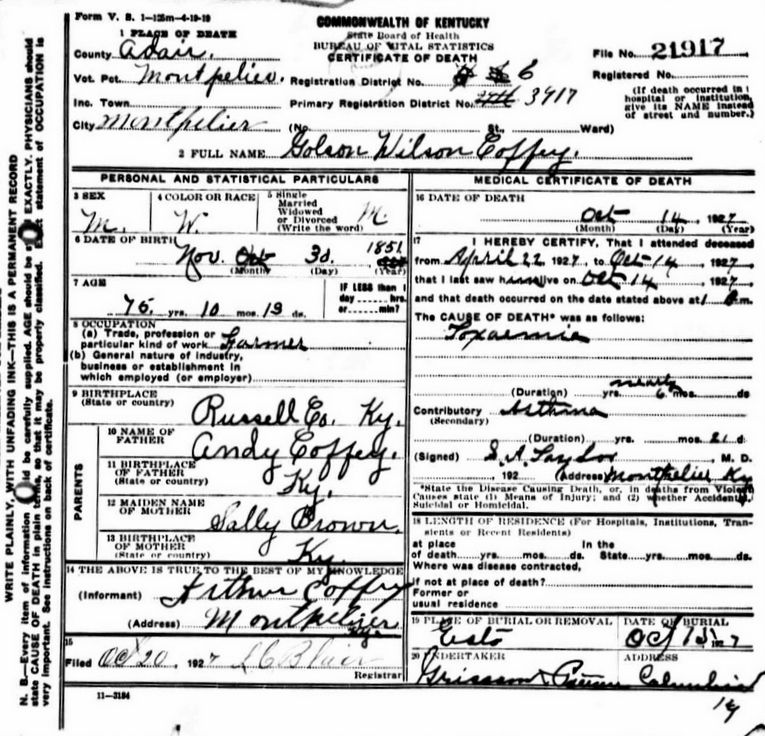 Form V. S. 1-125m-4-19-19
COMMONWEALTH OF KENTUCKY
State Board of Health
BUREAU OF VITAL STATISTICS
CERTIFICATE OF DEATH
1 PLACE OF DEATH
County Adair.
Vot. Pct. Montpelier.
Inc. Town
City Montpelier
Registration District No. 6
Primary Registration District No. 3917
(No. St., Ward)
File No. 21917
Registered No.
(If death occurred in
hospital or institution,
give its NAME instead
of street and number.)
2 FULL NAME Golson Wilson Coffey.
PERSONAL AND STATISTICAL PARTICULARS
3 SEX
M.
4 COLOR OR RACE
W.
5 Single
Married
Widowed
or Divorced
(Write the word)
M.
6 DATE OF BIRTH
Nov. Oct 30. 1851
(Month) (Day) (Year)
7 AGE
75 yrs. 10 mos. 13 ds.
IF LESS than 1
day hrs.
or min?
8 OCCUPATION
(a) Trade, profession or
particular kind of work Farmer
(b) General nature of industry,
business or establishment in
which employed (or employer)
9 BIRTHPLACE
(State or country)
Russell Co. Ky.
PARENTS
10 NAME OF
FATHER
Andy Coffey.
11 BIRTHPLACE
OF FATHER
(State or country)
Ky.
12 MAIDEN NAME
OF MOTHER
Sally Brown.
13 BIRTHPLACE
OF MOTHER
(State or country)
Ky.
14 THE ABOVE IS TRUE TO THE BEST OF MY KNOWLEDGE
(Informant) Arthur Coffey
(Address) Montpelier
Ky.
15
Filed Oct 20, 1927 L C Blair
Registrar
11-3184
MEDICAL CERTIFICATE OF DEATH
16 DATE OF DEATH
Oct 14, 1927
(Month) (Day) (Year)
17 I HEREBY CERTIFY, That I attended deceased
from April 22 1927, to Oct 14, 1927
that I last saw him alive on Oct 14, 1927
and that death occurred on the date stated above at 1 m.
The CAUSE OF DEATH* was as follows:
Toxaemia
nearly
(Duration) yrs. 6 mos. ds
Contributory Asthma
(Secondary)
(Duration) yrs. mos. 21 d
(Signed) S. A. Taylor, M. D.
, 192 (Address) Montpelier Ky
*State the Disease Causing Death, or, in deaths from Violent
Causes state (1) Means of Injury; and (2) whether Accidental,
Suicidal or Homicidal.
18 LENGTH OF RESIDENCE (For Hospitals, Institutions, Tran-
sients or Recent Residents)
at place In the
of death yrs. mos. ds. State yrs. mos. ds.
Where was disease contracted,
if not at place of death?
Former or
usual residence
19 PLACE OF BURIAL OR REMOVAL
Esto
DATE OF BURIAL
Oct 15 1927
20 UNDERTAKER
ADDRESS
Grissom Columbia
14
WRITE PLAINLY, WITH UNFADING INK—THIS IS A PERMANENT RECORD
N. B.—Every item of information should be carefully supplied. AGE should be EXACTLY. PHYSICIANS should
state CAUSE OF DEATH in plain terms, so that it may be properly classified. Exact statement of OCCUPATION is
very important. See instructions on back of certificate.